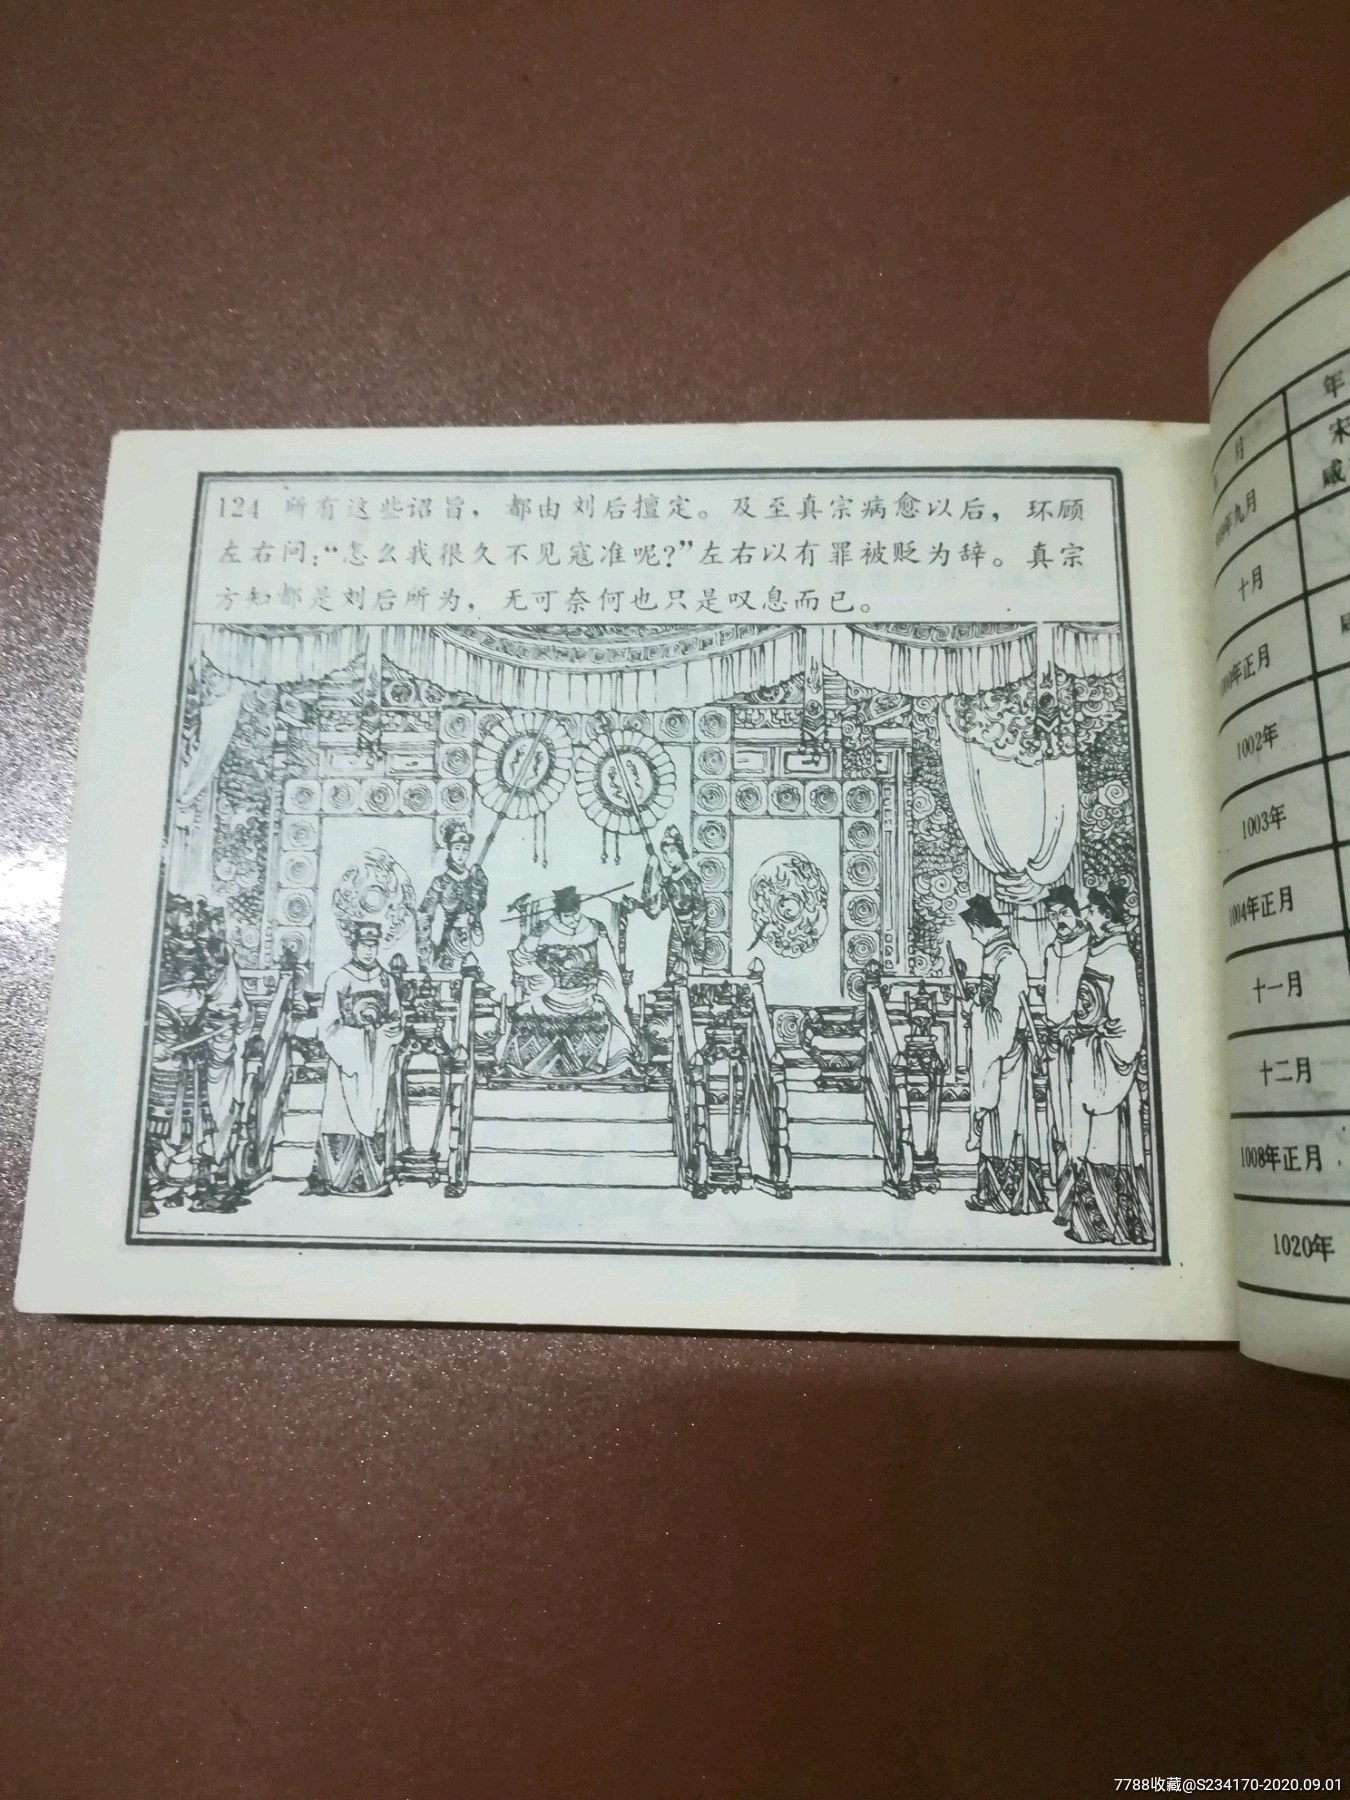 124 所有这些诏旨，都由刘后擅定。及至真宗病愈以后，环顾
左右问：“怎么我很久不见寇准呢？”左右以有罪被贬为辞。真宗
方知都是刘后所为，无可奈何也只是叹息而已。
年
月
宋
咸
年九月
十月
年正月
1002年
1003年
1004年正月
十一月
十二月
1008年正月
1020年
7788收藏@S234170-2020.09.01